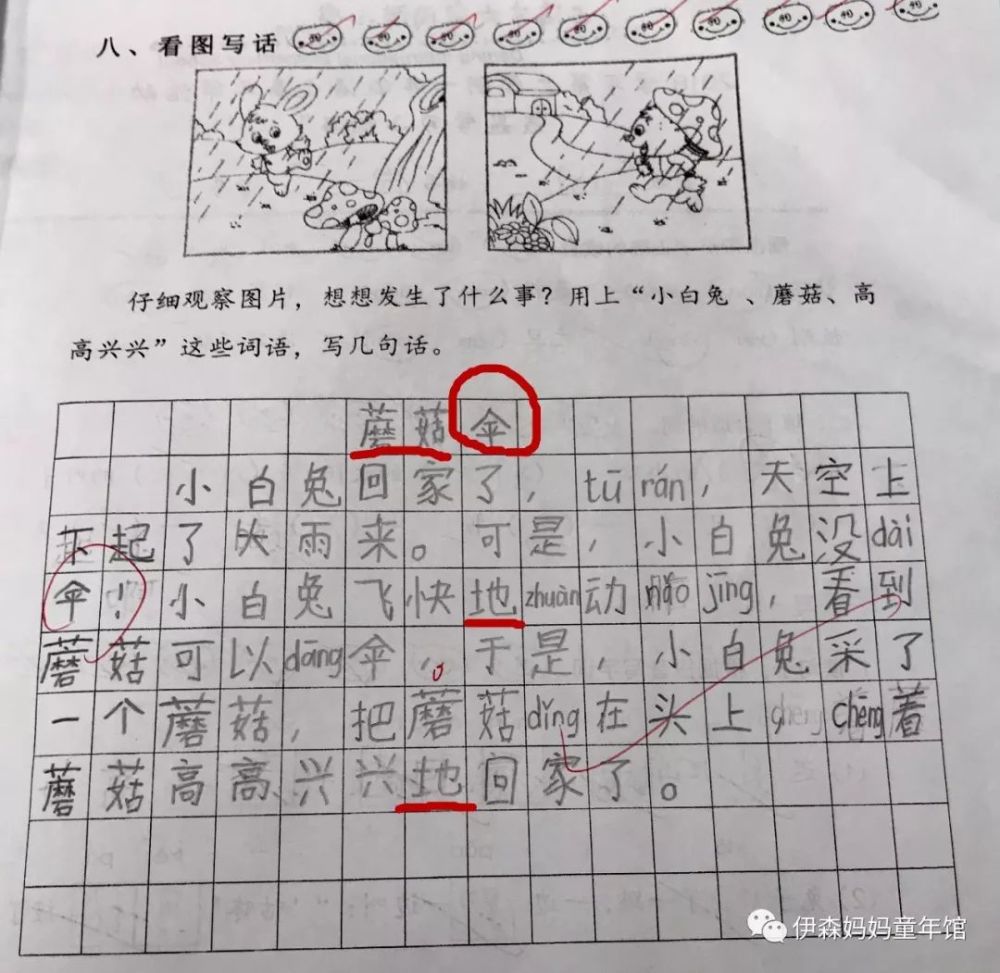 八、看图写话
仔细观察图片，想想发生了什么事？用上“小白兔、蘑菇、高
高兴兴”这些词语，写几句话。
蘑菇伞
小白兔回家了，tū rán，天空上
下起了大雨来。可是，小白兔没dài
伞！小白兔飞快地zhuàn动nǎo jīng，看到
蘑菇可以dāng伞，于是，小白兔采了
一个蘑菇，把蘑菇dǐng在头上，chēng着
蘑菇高高兴兴地回家了。
伊森妈妈童年馆